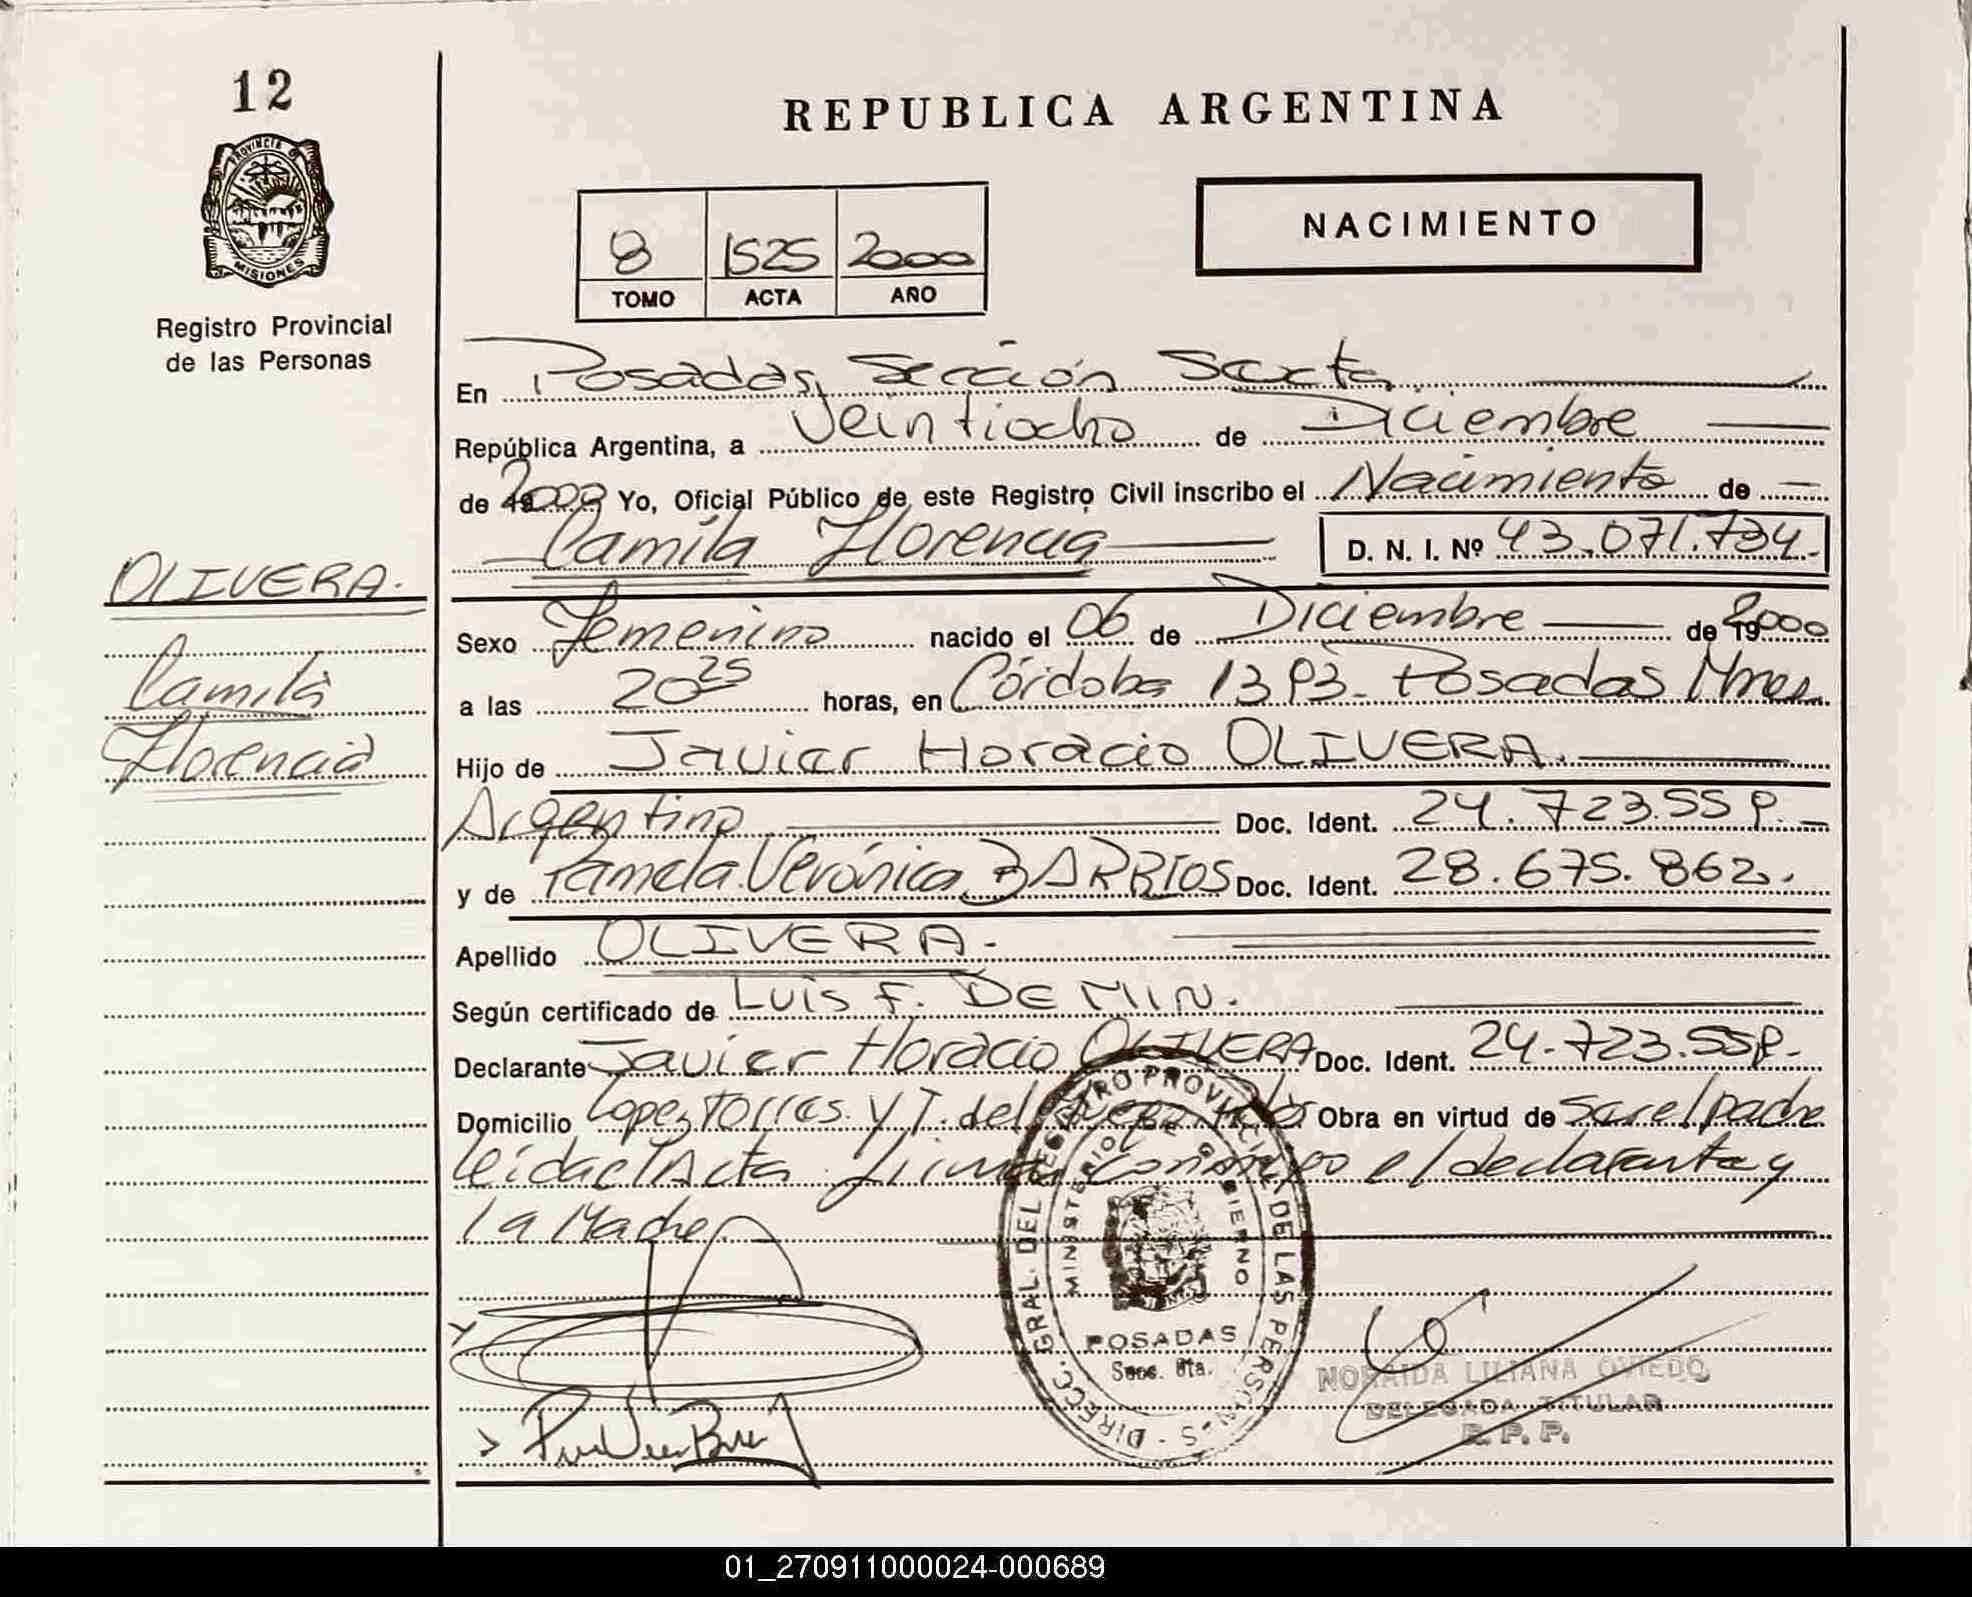 12
REPUBLICA ARGENTINA
PROVINCIA DE
MISIONES
Registro Provincial
de las Personas
NACIMIENTO
8 1525 2000
TOMO ACTA AÑO
En Posadas, Sección Sexta
República Argentina, a Veintiocho de Diciembre
de 2000 Yo, Oficial Público de este Registro Civil inscribo el Nacimiento de
Camila Florencia D. N. I. Nº 43.071.734.-
OLIVERA.
Camila
Florencia
Sexo Femenino nacido el 06 de Diciembre de 19 2000
a las 20 25 horas, en Córdoba 1393- Posadas Mnes.
Hijo de Javier Horacio OLIVERA.
Argentino Doc. Ident. 24.723.559.-
y de Pamela Verónica BARRIOS Doc. Ident. 28.675.862.
Apellido OLIVERA.-
Según certificado de LUIS F. DE MIN.
Declarante Javier Horacio OLIVERA Doc. Ident. 24.723.559.-
Domicilio Lopez Torres y T. del Obra en virtud de ser el padre
leida el Acta firma conmigo el declarante y
la Madre
DIRECC. GRAL. DEL REGISTRO PROVINCIAL DE LAS PERSONAS
MINISTERIO DE GOBIERNO
POSADAS
Secc. 6ta.
NORAIDA LILIANA OVIEDO
DELEGADA TITULAR
R. P. P.
01_270911000024-000689